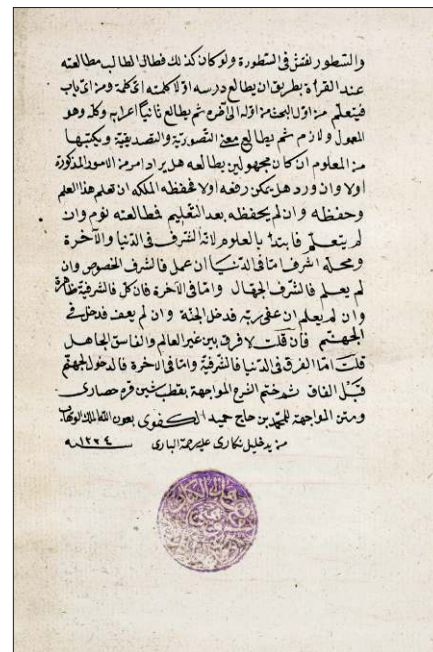 والسطور لفتش فى السطورة ولو كان كذلك فطالب الطالب مطالعته
عند القرأة بطريق ان يطالع درسه اولا كلمته اى كلمة ومن اى باب
فيتعلم من اول البحث من اوله الى آخره ثم يطالع ثانيا اعرابه وكله وهو
المعمول ولازم ثم يطالع معنى التصورية والتصديقية ويكتبها
من المعلوم ان كان مجهولين يطالعه هل يراد امر من الامور المذكورة
اولا وان ورد هل يمكن رفعه اولا فحفظه الملكه ان تعلم هذا العلم
وحفظه وان لم يحفظه بعد التعليم فمطالعته نوم وان
لم يتعلم فابتدأ بالعلوم لانه الشرف فى الدنيا والآخرة
ومحله اشرف اما فى الدنيا ان عمل فالشرف الخصوص وان
لم يعلم فالشرف الجهال واما فى الآخرة فان كل فالشرفية ظاهرة
وان لم يعلم ان عفى ربه فدخل الجنة وان لم يعف فدخل فى
الجهنم فان قلت لا فرق بين غير العالم والفاسق الجاهل
قلت اما الفرق فى الدنيا فالشرفية واما فى الآخرة فالدخول الجهنم
قبل الفاق تمت ختم الشرح المواجهة بقطب شين قره حصارى
ومتن المواجهة للمحمد بن حاج حميد الكفوى بعون الله الملك الوهاب
من يد خليل نكارى عليه رحمة البارى ١٢٢٤